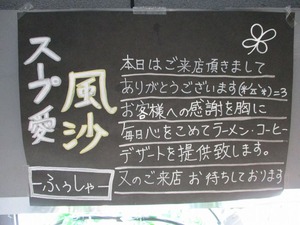 スープ愛
風沙
ーふぅしゃー
本日はご来店頂きまして
ありがとうございます(*^^*)=3
お客様への感謝を胸に
毎日心をこめてラーメン・コーヒー
デザートを提供致します。
又のご来店お待ちしております